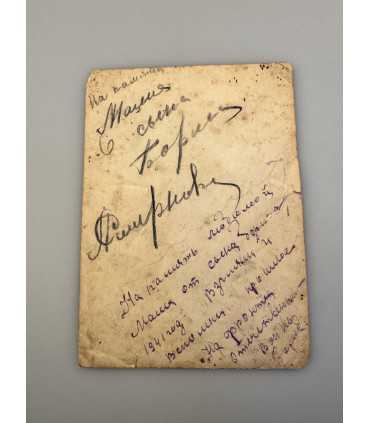 На память
Мамин
сына
Бориса
Смирнова
На память любимой
Маме от сына Бориса
1941 год Взгляни и
вспомни прошлое
На фронт
отечественной